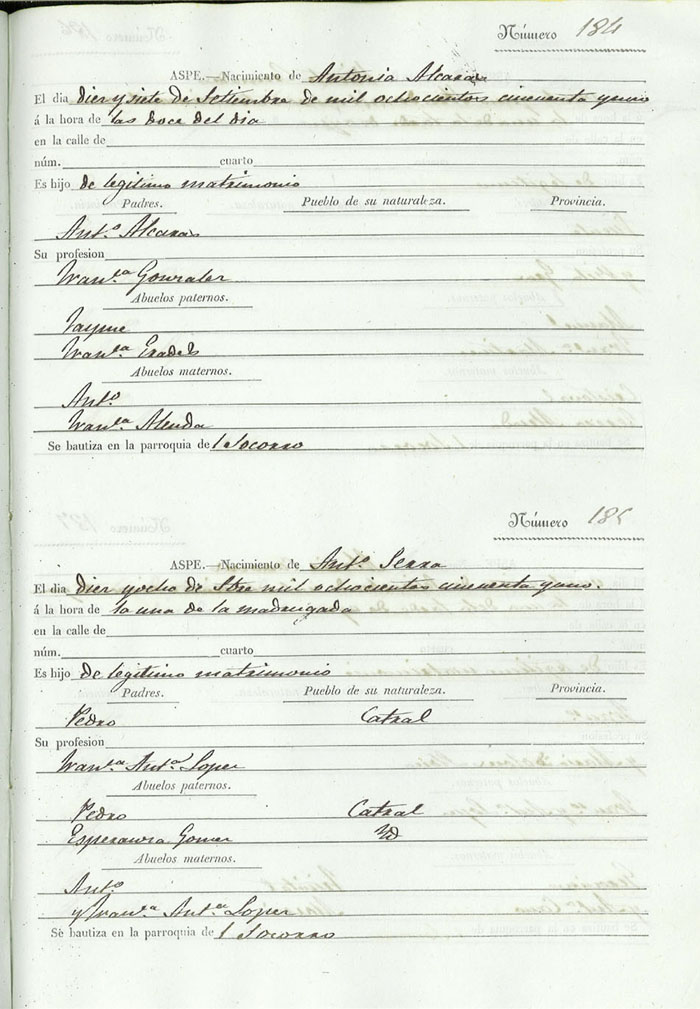 Número 184
ASPE.—Nacimiento de Antonia Alcaras
El dia diez y siete de Setiembre de mil ochocientos cincuenta y uno
á la hora de las doce del dia
en la calle de
núm. cuarto
Es hijo de legitimo matrimonio
Padres. Pueblo de su naturaleza. Provincia.
Ant.º Alcaras
Su profesion
Fran.ca Gonzalez
Abuelos paternos.
Jayme
Fran.ca
Abuelos maternos.
Ant.º
Fran.ca Alenda
Se bautiza en la parroquia de l Socorro
Número 185
ASPE.—Nacimiento de Ant.º Serra
El dia diez y ocho de Stre mil ochocientos cincuenta y uno.
á la hora de la una de la madrugada
en la calle de
núm. cuarto
Es hijo de legitimo matrimonio
Padres. Pueblo de su naturaleza. Provincia.
Pedro Catral
Su profesion
Fran.ca Ant.a Lopez
Abuelos paternos.
Pedro Catral
Esperanza Gomez Yd
Abuelos maternos.
Ant.º
y Fran.ca Ant.a Lopez
Se bautiza en la parroquia de l Socorro